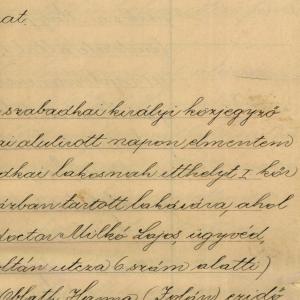 at.
szabadkai királyi közjegyző
ai alulirott napon elmentem
dkai lakosnak itthelyt I. kör
házban tartott lakására, ahol
doctor Milkó Lajos ügyvéd,
oltán utcza 6 szám alatti)
Oblath Hanna (Jolán) zsidó